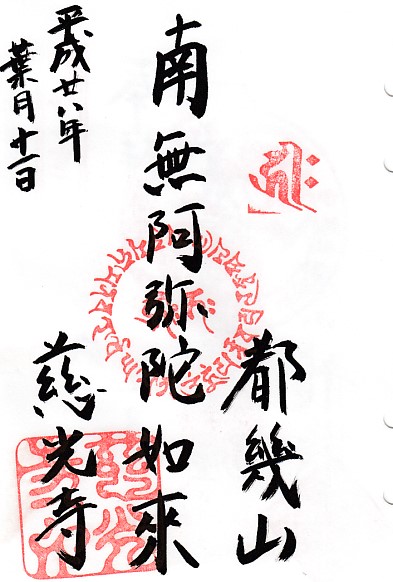 都幾山
南無阿弥陀如來
慈光寺
平成廿八年
葉月十一日